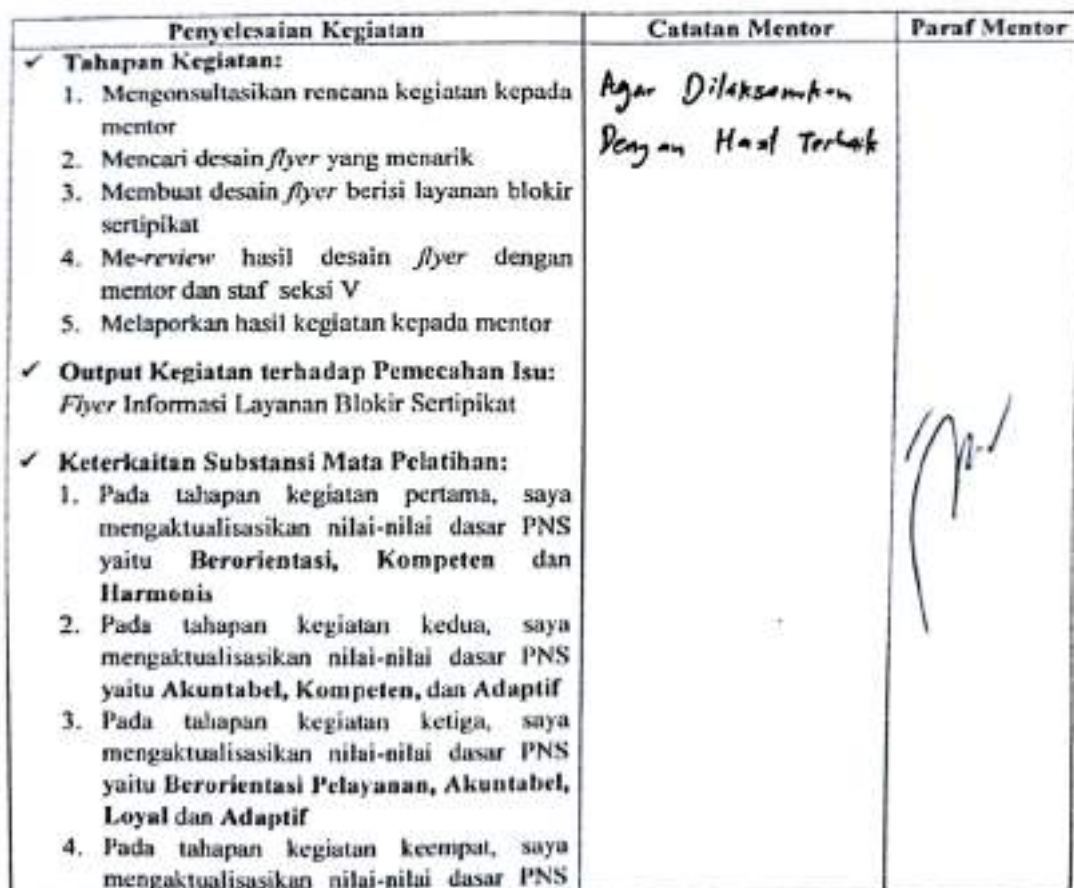 Penyelesaian Kegiatan
Catatan Mentor
Paraf Mentor
✓ Tahapan Kegiatan:
1. Mengonsultasikan rencana kegiatan kepada
mentor
2. Mencari desain flyer yang menarik
3. Membuat desain flyer berisi layanan blokir
sertipikat
4. Me-review hasil desain flyer dengan
mentor dan staf seksi V
5. Melaporkan hasil kegiatan kepada mentor
✓ Output Kegiatan terhadap Pemecahan Isu:
Flyer Informasi Layanan Blokir Sertipikat
✓ Keterkaitan Substansi Mata Pelatihan:
1. Pada tahapan kegiatan pertama, saya
mengaktualisasikan nilai-nilai dasar PNS
yaitu Berorientasi, Kompeten dan
Harmonis
2. Pada tahapan kegiatan kedua, saya
mengaktualisasikan nilai-nilai dasar PNS
yaitu Akuntabel, Kompeten, dan Adaptif
3. Pada tahapan kegiatan ketiga, saya
mengaktualisasikan nilai-nilai dasar PNS
yaitu Berorientasi Pelayanan, Akuntabel,
Loyal dan Adaptif
4. Pada tahapan kegiatan keempat, saya
mengaktualisasikan nilai-nilai dasar PNS
Agar Dilaksanakan
Dengan Hasil Terbaik